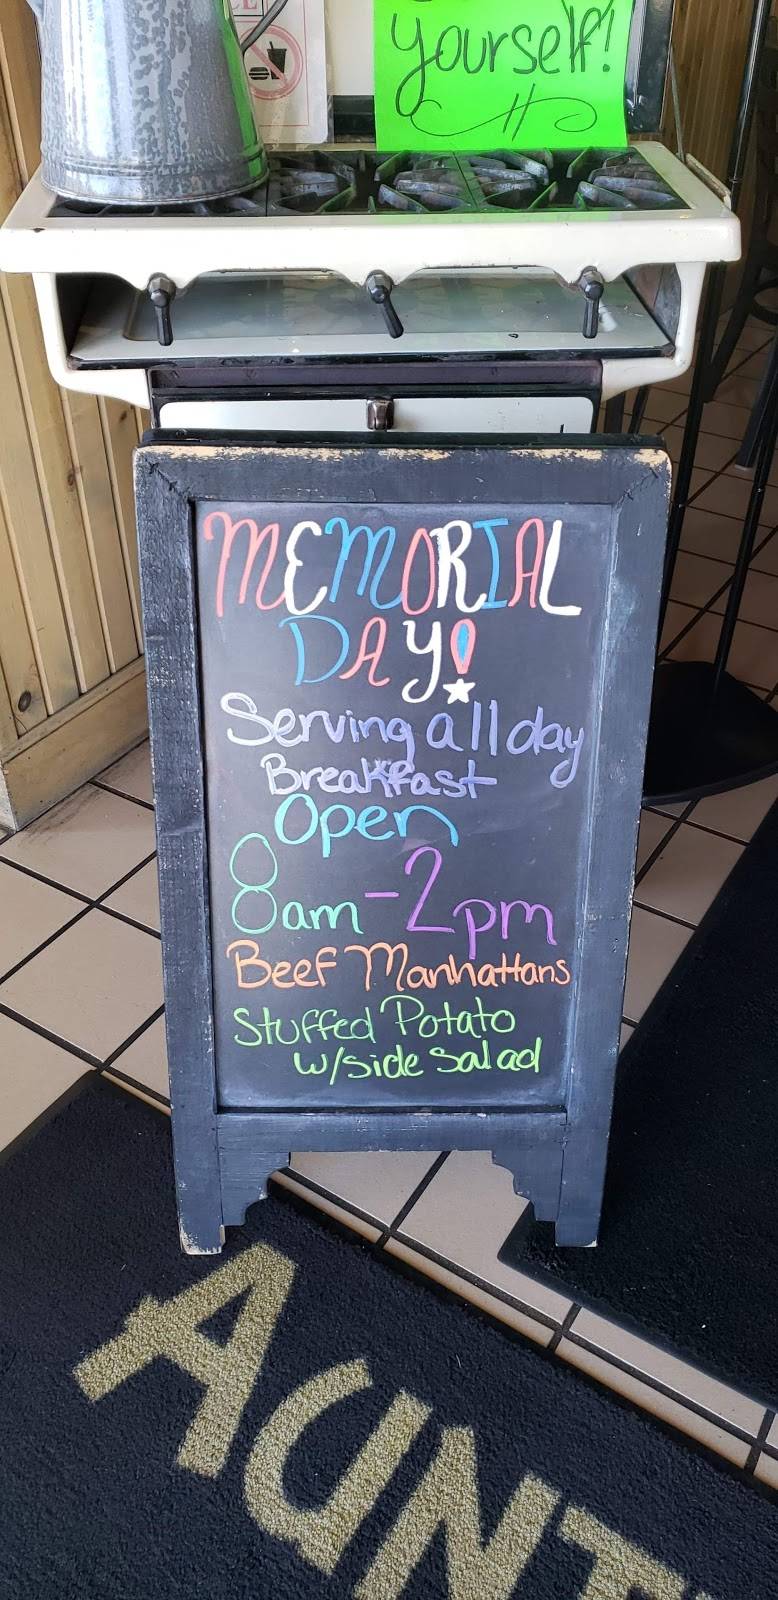 yourself!
MEMORIAL
DAY!
Serving all day
Breakfast
Open
8am-2pm
Beef Manhattans
Stuffed Potato
w/side salad
AUNT